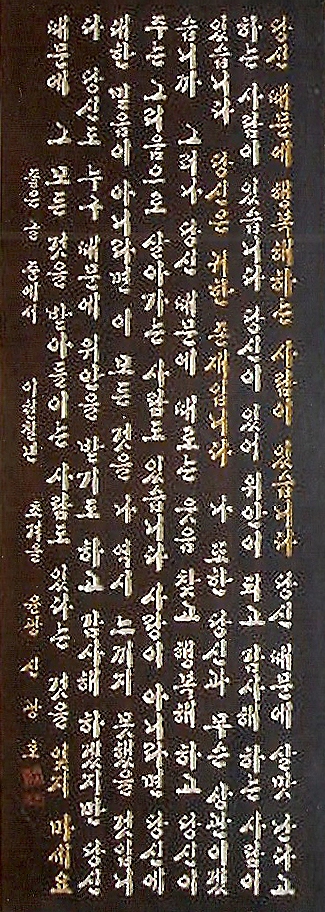 당신 때문에 행복해하는 사람이 있습니다 당신 때문에 살맛 난다고
하는 사람이 있습니다 당신이 있어 위안이 되고 감사해 하는 사람이
있습니다 당신은 귀한 존재입니다 나 또한 당신과 무슨 상관이겠
습니까 그러나 당신 때문에 때로는 웃음 찾고 행복해 하고 당신이
주는 그리움으로 살아가는 사람도 있습니다 사랑이 아니라면 당신에
대한 믿음이 아니라면 이 모든 것을 나 역시 느끼지 못했을 것입니
다 당신도 누구 때문에 위안을 받기도 하고 감사해 하겠지만 당신
때문에 그 모든 것을 받아들이는 사람도 있다는 것을 잊지 마세요
좋은 글 중에서 신광호